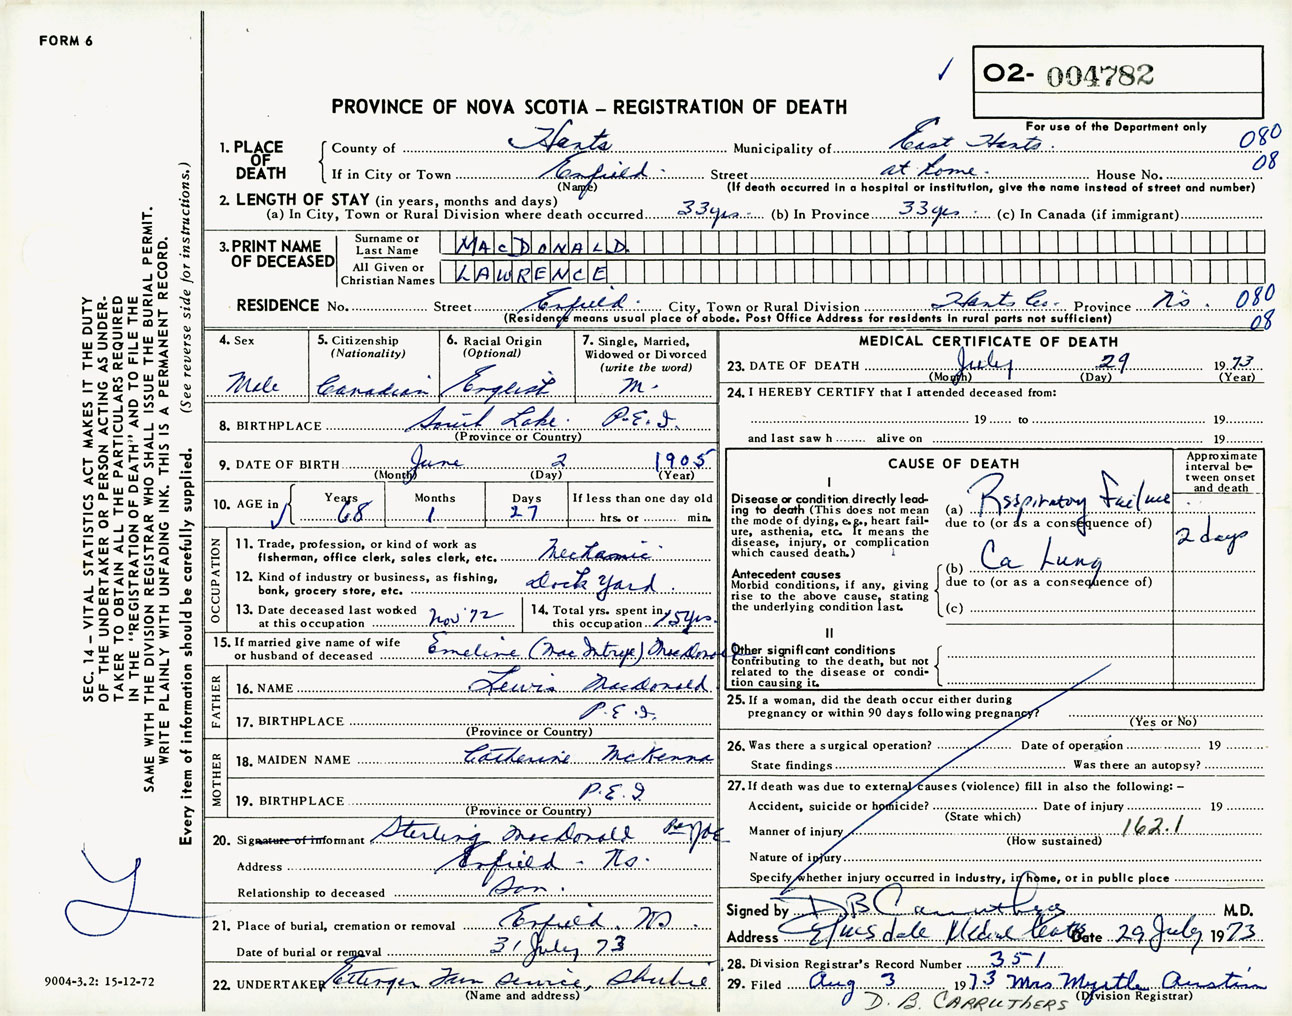 FORM 6
O2- 004782
PROVINCE OF NOVA SCOTIA – REGISTRATION OF DEATH
For use of the Department only
1. PLACE OF DEATH
County of Hants Municipality of East Hants. 080
If in City or Town Enfield. Street at home. House No. 08
(Name) (If death occurred in a hospital or institution, give the name instead of street and number)
2. LENGTH OF STAY (in years, months and days)
(a) In City, Town or Rural Division where death occurred 33 yrs. (b) In Province 33 yrs (c) In Canada (if immigrant)
3. PRINT NAME OF DECEASED
Surname or Last Name MACDONALD.
All Given or Christian Names LAWRENCE
RESIDENCE No. Street Enfield. City, Town or Rural Division Hants Co. Province N.S. 080
(Residence means usual place of abode. Post Office Address for residents in rural parts not sufficient) 08
4. Sex
Male
5. Citizenship
(Nationality)
Canadian
6. Racial Origin
(Optional)
English
7. Single, Married,
Widowed or Divorced
(write the word)
M.
8. BIRTHPLACE Lake. P.E.I.
(Province or Country)
9. DATE OF BIRTH June 2 1905
(Month) (Day) (Year)
10. AGE in
Years Months Days If less than one day old
68 1 27 hrs. or min.
OCCUPATION
11. Trade, profession, or kind of work as
fisherman, office clerk, sales clerk, etc. Mechanic.
12. Kind of industry or business, as fishing,
bank, grocery store, etc. Dock Yard.
13. Date deceased last worked
at this occupation Nov '72
14. Total yrs. spent in
this occupation 15 yrs.
15. If married give name of wife
or husband of deceased Emeline (MacIntyre) MacDonald
FATHER
16. NAME Lewis MacDonald
17. BIRTHPLACE P.E.I.
(Province or Country)
MOTHER
18. MAIDEN NAME Catherine McKenna
19. BIRTHPLACE P.E.I
(Province or Country)
20. Signature of informant Sterling MacDonald
Address Enfield - Ns.
Relationship to deceased Son.
21. Place of burial, cremation or removal Enfield, NS
Date of burial or removal 31 July 73
22. UNDERTAKER Ettinger Fun Service, Shubie
(Name and address)
MEDICAL CERTIFICATE OF DEATH
23. DATE OF DEATH July 29 1973
(Month) (Day) (Year)
24. I HEREBY CERTIFY that I attended deceased from:
19 to 19
and last saw h alive on 19
CAUSE OF DEATH
Approximate
interval be-
tween onset
and death
I
Disease or condition directly lead-
ing to death (This does not mean
the mode of dying, e.g., heart fail-
ure, asthenia, etc. It means the
disease, injury, or complication
which caused death.)
(a) Respiratory Failure
due to (or as a consequence of)
2 days
Antecedent causes
Morbid conditions, if any, giving
rise to the above cause, stating
the underlying condition last.
(b) Ca Lung
due to (or as a consequence of)
(c)
II
Other significant conditions
contributing to the death, but not
related to the disease or condi-
tion causing it.
25. If a woman, did the death occur either during
pregnancy or within 90 days following pregnancy?
(Yes or No)
26. Was there a surgical operation? Date of operation 19
State findings Was there an autopsy?
27. If death was due to external causes (violence) fill in also the following: –
Accident, suicide or homicide? Date of injury 19
(State which)
Manner of injury 162.1
(How sustained)
Nature of injury
Specify whether injury occurred in industry, in home, or in public place
Signed by D B Carruthers M.D.
Address Elmsdale Medical Centre Date 29 July 1973
28. Division Registrar's Record Number 351
29. Filed Aug 3 1973 Mrs Myrtle Austin
(Division Registrar)
D. B. CARRUTHERS
SEC. 14 – VITAL STATISTICS ACT MAKES IT THE DUTY
OF THE UNDERTAKER OR PERSON ACTING AS UNDER-
TAKER TO OBTAIN ALL THE PARTICULARS REQUIRED
IN THE "REGISTRATION OF DEATH" AND TO FILE THE
SAME WITH THE DIVISION REGISTRAR WHO SHALL ISSUE THE BURIAL PERMIT.
WRITE PLAINLY WITH UNFADING INK. THIS IS A PERMANENT RECORD.
Every item of information should be carefully supplied. (See reverse side for instructions.)
9004-3.2: 15-12-72